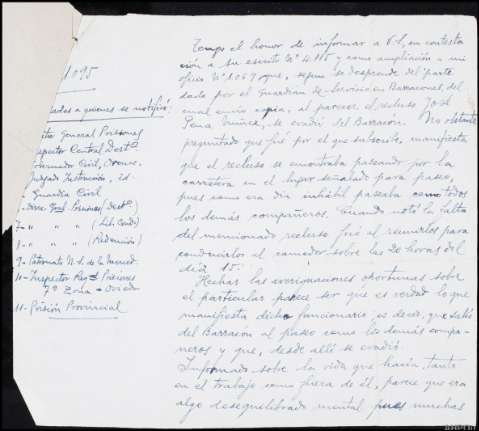 1095
a quienes se notificó:
General Prisiones
Inspector Central Destº
Gobernador Civil, Orense.
Juzgado Instrucción, id.
Guardia Civil
Prisiones (Destº)
7- " " " (Lib. Cond.)
8- " " " (Redención)
9- Patronato N. S. de la Merced
10- Inspector Reg. Prisiones
7ª Zona - Oviedo
11- Prisión Provincial
Tengo el honor de informar a V.I., en contesta
ción a su escrito Nº 4.115 y como ampliación a mi
oficio Nº 1.069 que, según se desprende del parte
dado por el Guardian de Servicio en Barracones, del
cual envío copia, al parecer el recluso José
Pena se evadió del Barracón. No obstante
preguntado que fué por el que subscribe, manifiesta
que el recluso se encontraba paseando por la
carretera en el lugar señalado para paseo,
pues como era día inhábil paseaba como todos
los demás compañeros. Cuando notó la falta
del mencionado recluso fué al reunirlos para
conducirlos al comedor sobre las 20 horas del
día 15.
Hechas las averiguaciones oportunas sobre
el particular parece ser que es verdad lo que
manifiesta dicho funcionario, es decir, que salió
del Barracón al paseo como los demás compa-
ñeros y que, desde allí se evadió.
Informado sobre la vida que hacía, tanto
en el trabajo como fuera de él, parece que era
algo desequilibrado mental pues muchas